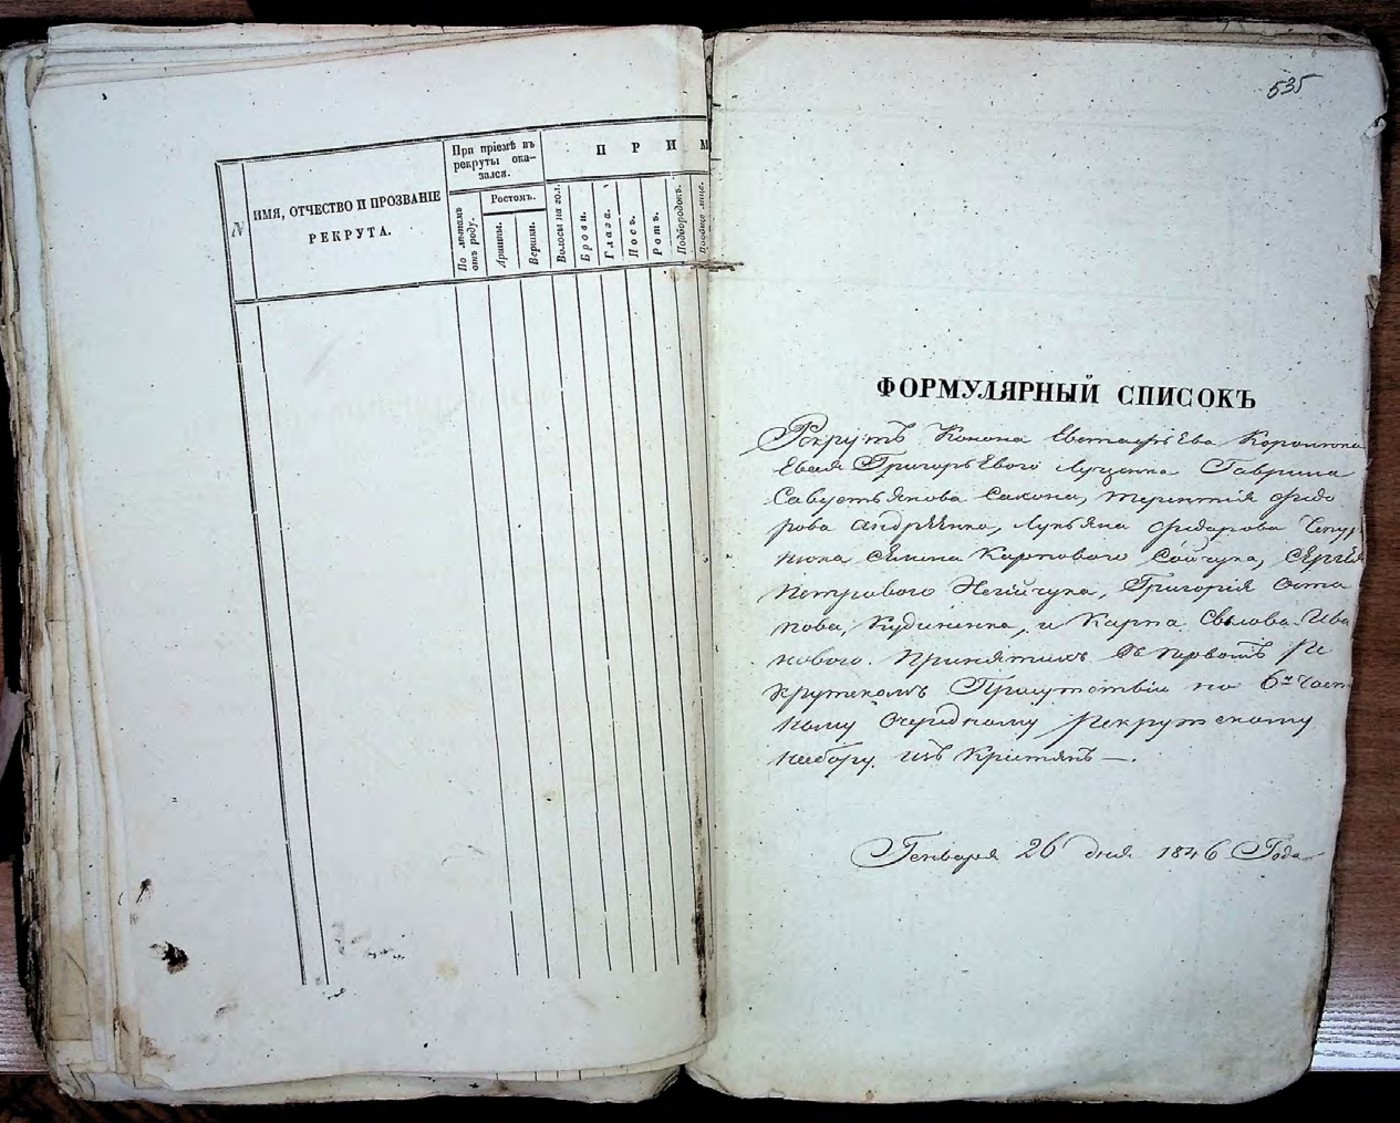 N
ИМЯ, ОТЧЕСТВО И ПРОЗВАНІЕ
РЕКРУТА.
При пріемѣ въ
рекруты ока-
зался.
По лѣтамъ
отъ роду.
Ростомъ.
Аршины.
Вершки.
П Р И М
Волосы на гол.
Брови.
Глаза.
Носъ.
Ротъ.
Подбородокъ.
Вообще лице.
535
ФОРМУЛЯРНЫЙ СПИСОКЪ
Рекрутъ Конона Евстафіева
Григоръевого Луценка Гаврила
Савустьянова Сакона, Терентія Фидо
рова Андрѣенка, Лукьяна Фидарова
нюка Семена Карпового Сойчука, Сергѣя
Петрового Григорія Оста
пова, Кудиненка, и Карпа Ива
нового. Принятихъ въ Первомъ Ре
крутскомъ Присутствіи по 6му Част
ному очередному рекрутскому
набору изъ Крестянъ —.
Генваря 26 дня 1846 Года